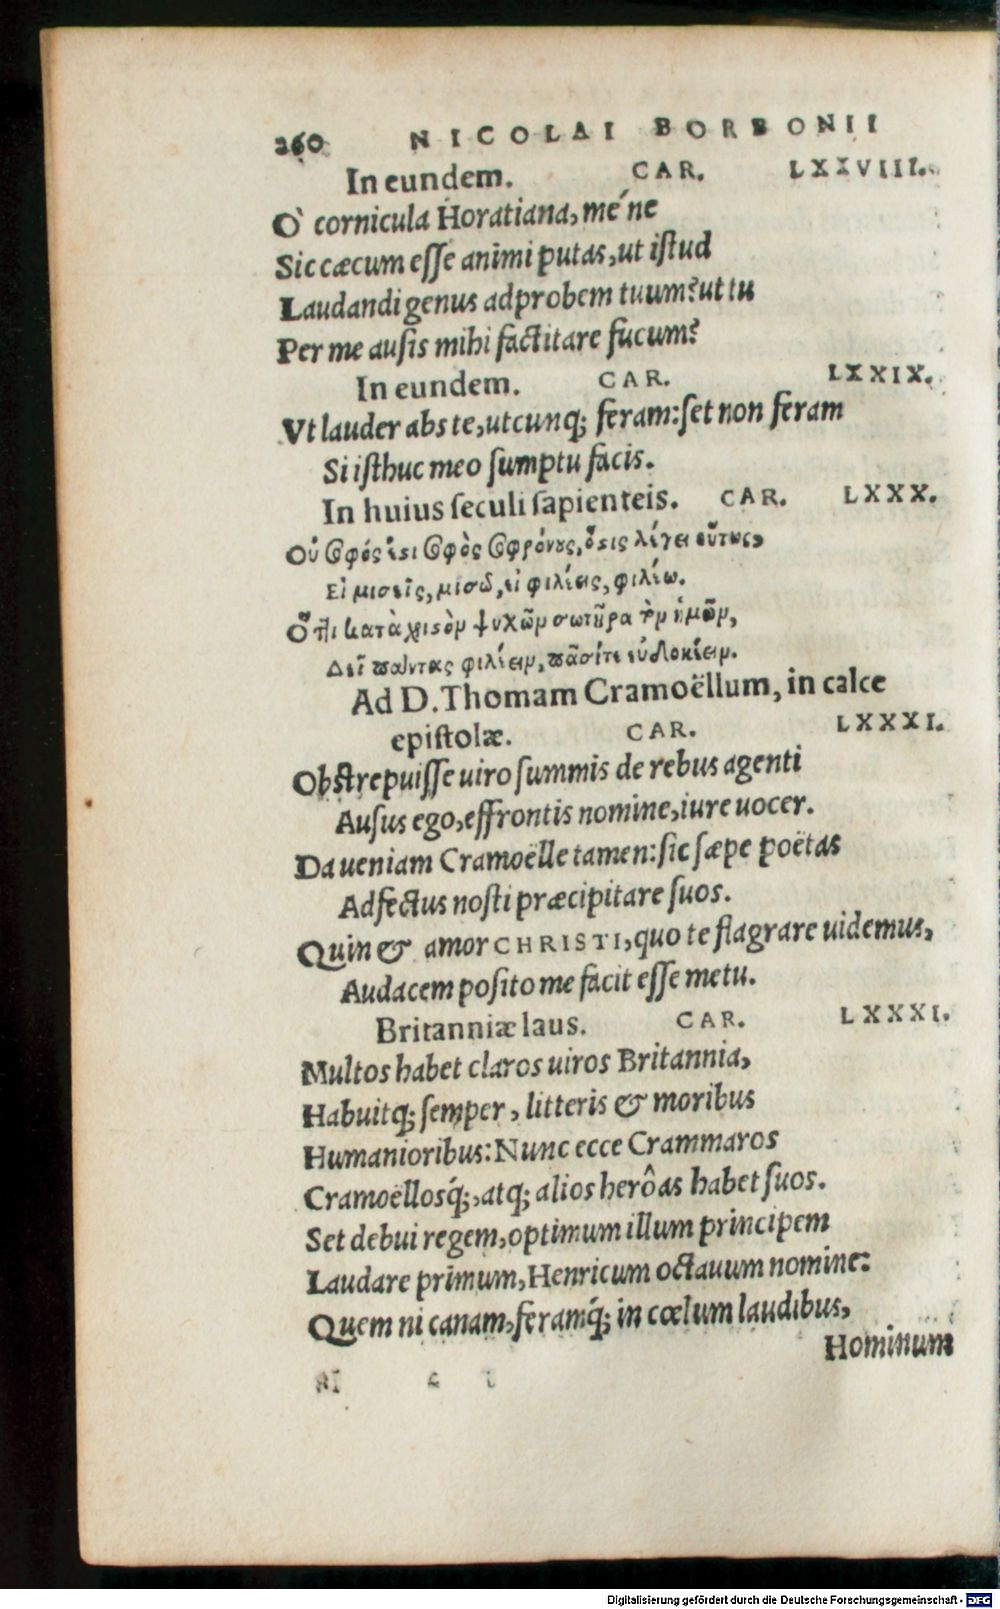 260 NICOLAI BORBONII
In eundem. CAR. LXXVIII.
O` cornicula Horatiana, mé ne
Sic cæcum eſſe animi putas, ut iſtud
Laudandi genus adprobem tuum? ut tu
Per me auſis mihi factitare fucum?
In eundem. CAR. LXXIX.
Vt lauder abs te, utcunq; feram: ſet non feram
Si iſthuc meo ſumptu facis.
In huius ſeculi ſapienteis. CAR. LXXX.
Οὐ σοφός ἐςι σοφὸς σοφρόνους, ὅςις λέγει οὕτως,
Εἰ μισεῖς, μισῶ, εἰ φιλέεις, φιλέω.
Ὅτι κατὰ χριςὸν ψυχῶν σωτῆρα τὸν ἡμῶν,
Δεῖ πάντας φιλέειν, πᾶσίτε εὐδοκέειν.
Ad D. Thomam Cramoëllum, in calce
epiſtolæ. CAR. LXXXI.
Obſtrepuiſſe uiro ſummis de rebus agenti
Auſus ego, effrontis nomine, iure uocer.
Da ueniam Cramoëlle tamen: ſic ſæpe poëtas
Adfectus noſti præcipitare ſuos.
Quin & amor CHRISTI, quo te flagrare uidemus,
Audacem poſito me facit eſſe metu.
Britanniæ laus. CAR. LXXXI.
Multos habet claros uiros Britannia,
Habuitq; ſemper, litteris & moribus
Humanioribus: Nunc ecce Crammaros
Cramoëllosq́;, atq; alios herôas habet ſuos.
Set debui regem, optimum illum principem
Laudare primum, Henricum octauum nomine:
Quem ni canam, feramq́; in cœlum laudibus,
Hominum
Digitalisierung gefördert durch die Deutsche Forschungsgemeinschaft - DFG